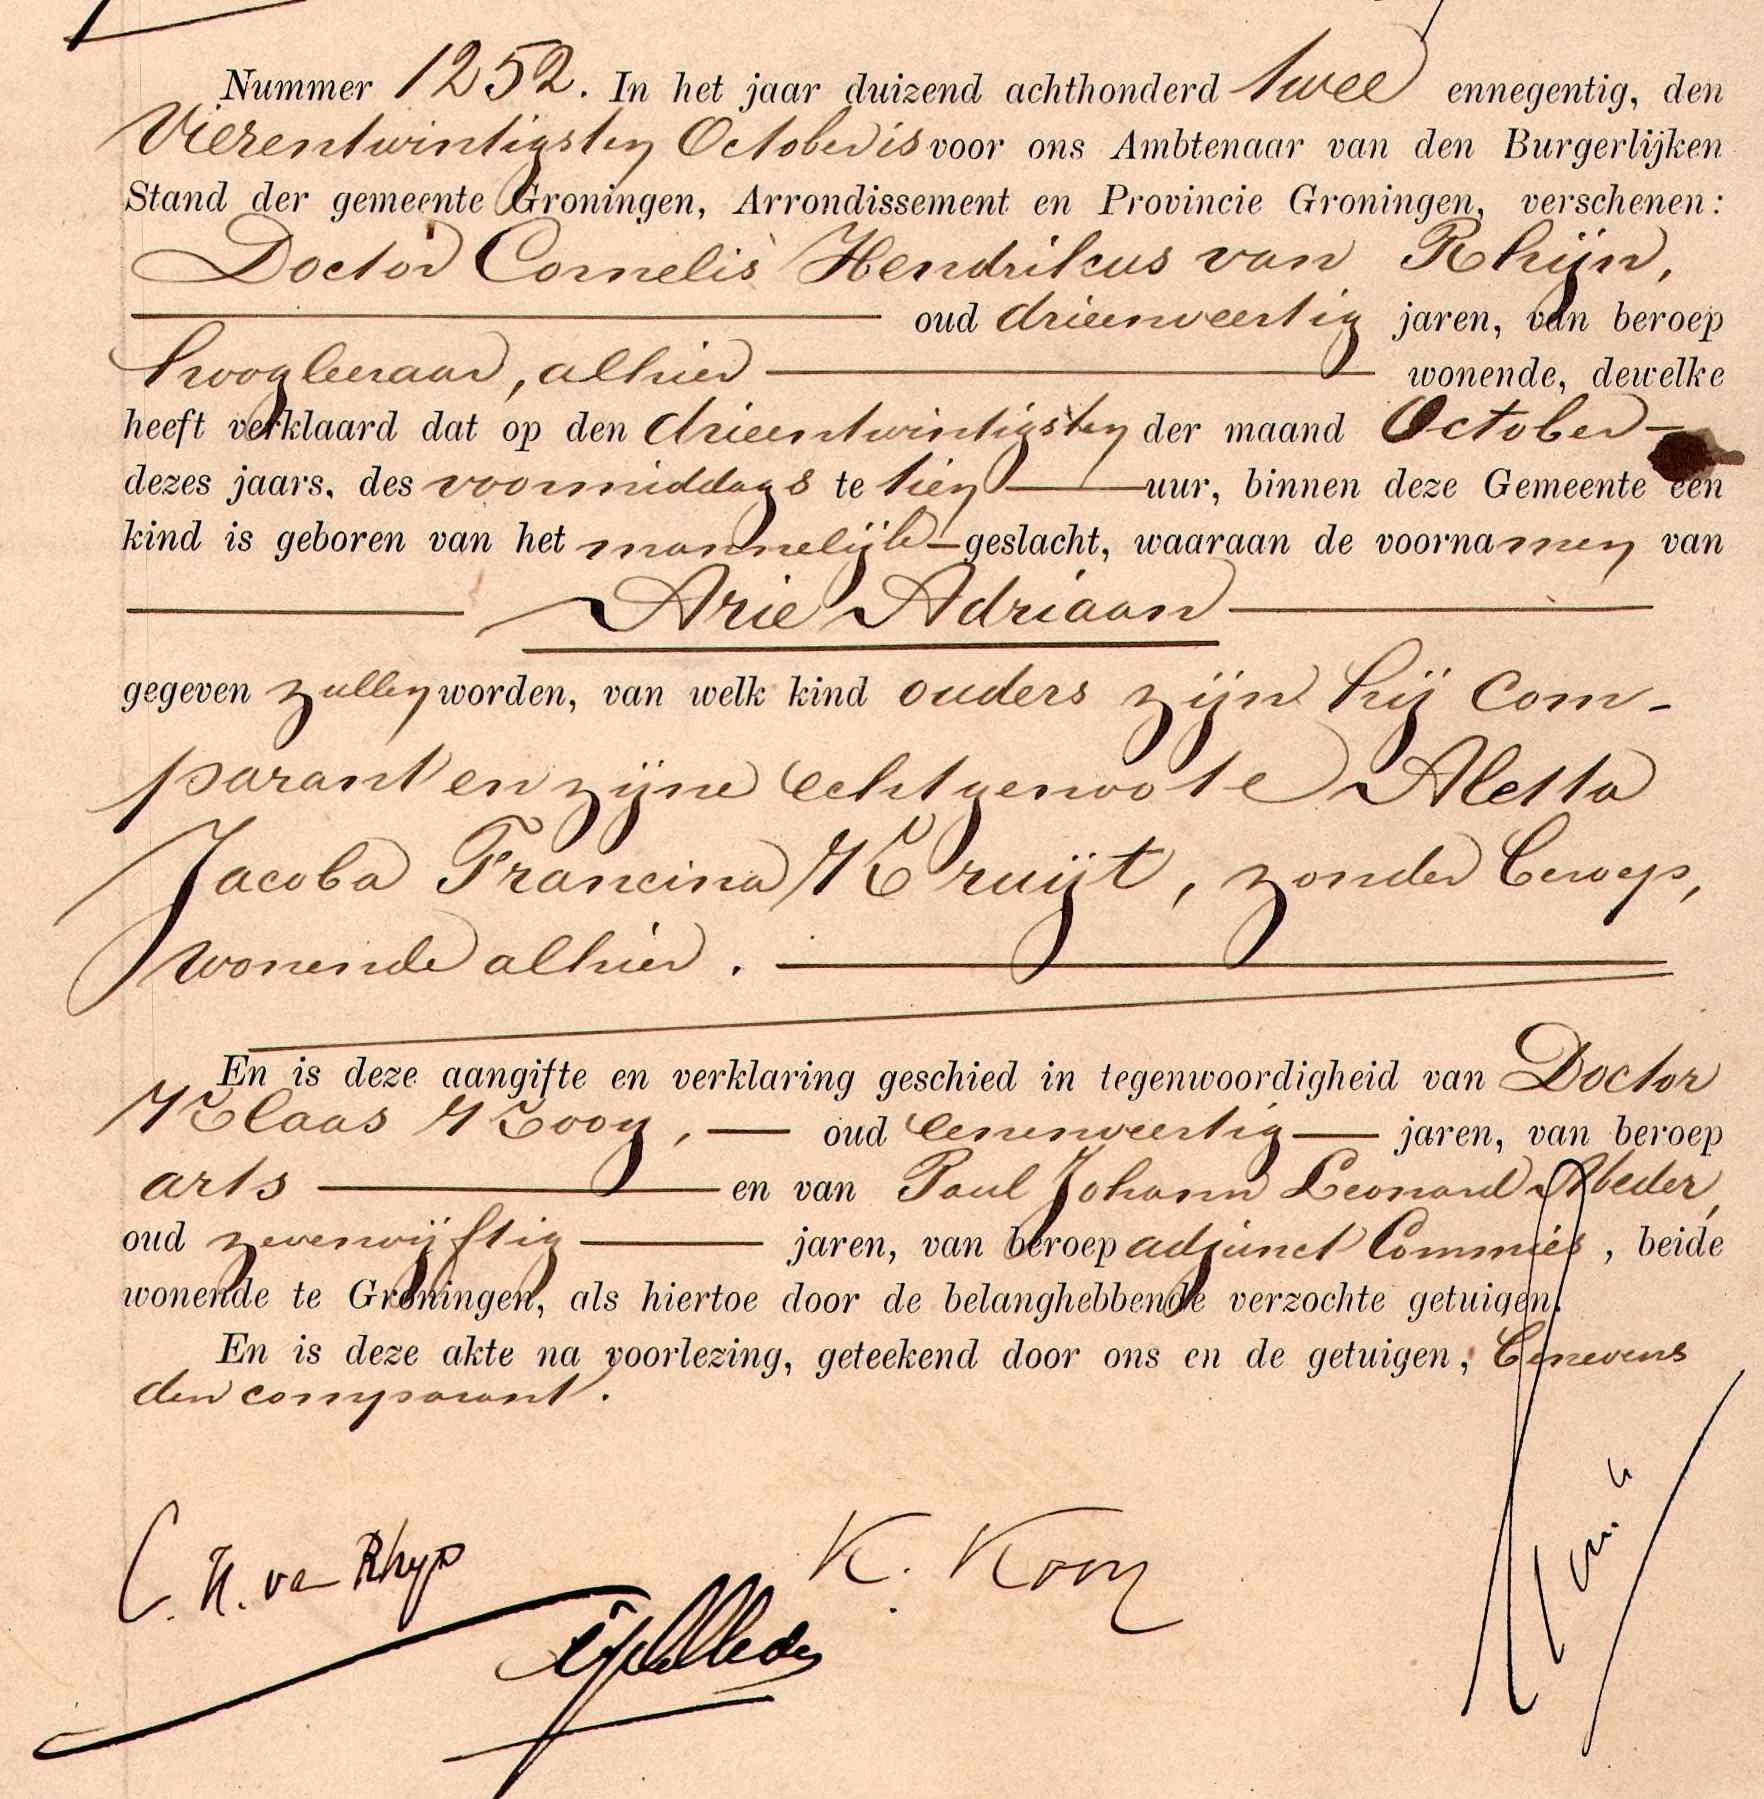 Nummer 1252. In het jaar duizend achthonderd twee ennegentig, den
Vierentwintigsten October is voor ons Ambtenaar van den Burgerlijken
Stand der gemeente Groningen, Arrondissement en Provincie Groningen, verschenen:
Doctor Cornelis Hendrikus van Rhijn,
oud drieenveertig jaren, van beroep
hoogleeraar, alhier wonende, dewelke
heeft verklaard dat op den drieentwintigsten der maand October
dezes jaars, des voormiddags te tien uur, binnen deze Gemeente een
kind is geboren van het mannelijk geslacht, waaraan de voornamen van
Arie Adriaan
gegeven zullen worden, van welk kind ouders zijn hij Com-
parant en zijne echtgenoote Aletta
Jacoba Francina Kruijt, zonder beroep,
wonende alhier.
En is deze aangifte en verklaring geschied in tegenwoordigheid van Doctor
Klaas Kooy, oud eenenveertig jaren, van beroep
arts en van Paul Johann Leonard Abeder,
oud zevenvijftig jaren, van beroep adjunct Commies, beide
wonende te Groningen, als hiertoe door de belanghebbende verzochte getuigen.
En is deze akte na voorlezing, geteekend door ons en de getuigen, benevens
den comparant.
C. H. van Rhijn K. Kooy